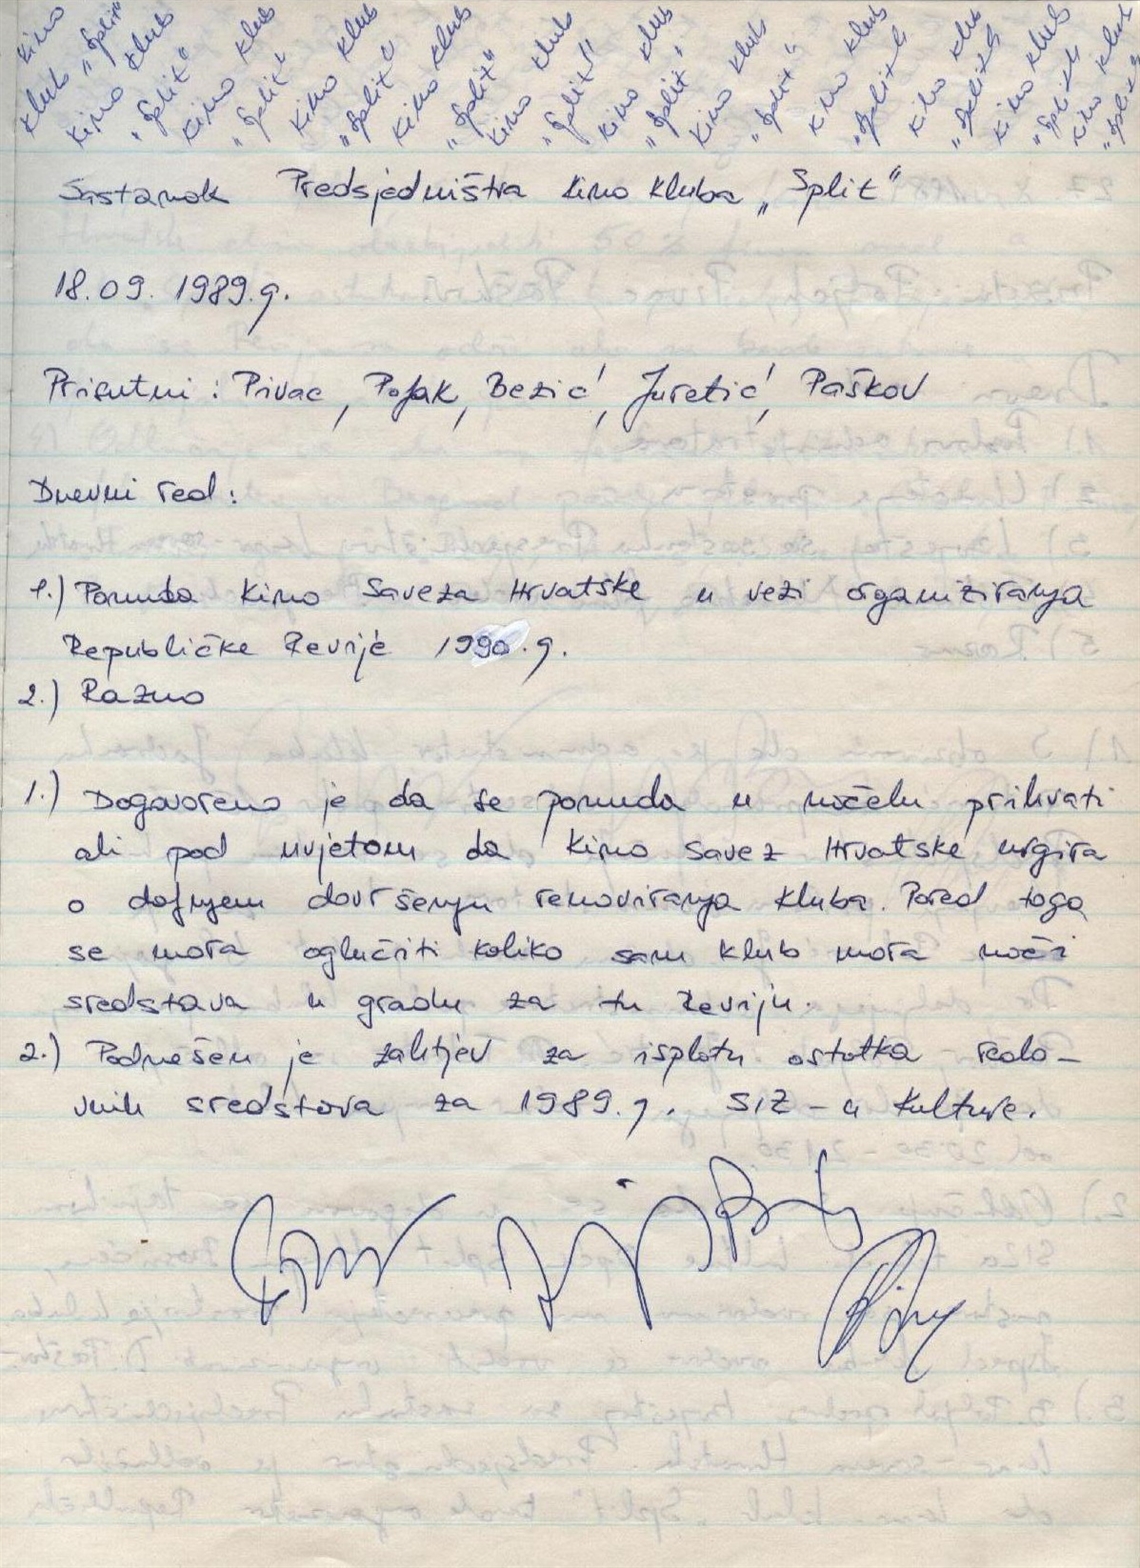 Kino klub „Split" Kino klub „Split" Kino klub „Split" Kino klub „Split" Kino klub „Split" Kino klub „Split" Kino klub „Split" Kino klub „Split" Kino klub „Split" Kino klub „Split" Kino klub „Split" Kino klub „Split"
Sastanak Predsjedništva Kino kluba „Split"
18.09. 1989.g.
Prisutni: Pivac, Poljak, Bezić, Juretić, Paškov
Dnevni red:
1.) Ponuda Kino Saveza Hrvatske u vezi organiziranja
Republičke Revije 1990.g.
2.) Razno
1.) Dogovoreno je da se ponuda u načelu prihvati
ali pod uvjetom da Kino savez Hrvatske urgira
o daljnjem dovršenju renoviranja kluba. Pored toga
se mora odlučiti koliko sam klub mora naći
sredstava u gradu za tu Reviju.
2.) Podnešen je zahtjev za isplatu ostatka redo-
vnih sredstava za 1989.g. SIZ-u Kulture.